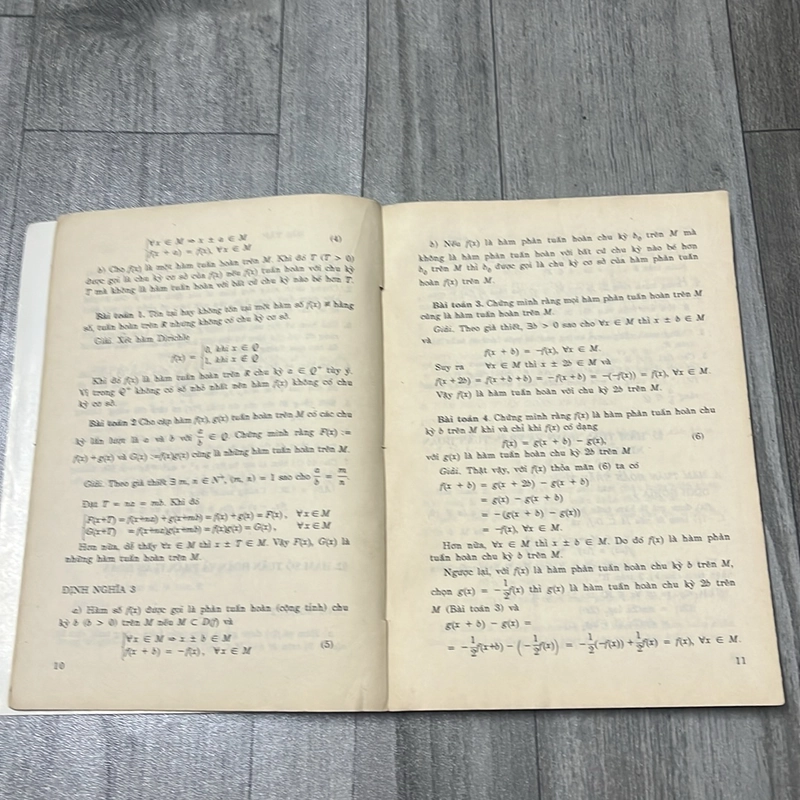 {∀x ∈ M ⇒ x ± a ∈ M
{f(x + a) = f(x), ∀x ∈ M (4)
b) Cho f(x) là một hàm tuần hoàn trên M. Khi đó T (T > 0)
được gọi là chu kỳ cơ sở của f(x) nếu f(x) tuần hoàn với chu kỳ
T mà không là hàm tuần hoàn với bất cứ chu kỳ nào bé hơn T.
Bài toán 1. Tồn tại hay không tồn tại một hàm số f(x) ≢ hằng
số, tuần hoàn trên R nhưng không có chu kỳ cơ sở.
Giải. Xét hàm Dirichle
f(x) = {0, khi x ∈ Q
{1, khi x ∈ Q
Khi đó f(x) là hàm tuần hoàn trên R chu kỳ a ∈ Q⁺ tùy ý.
Vì trong Q⁺ không có số nhỏ nhất nên hàm f(x) không có chu
kỳ cơ sở.
Bài toán 2 Cho cặp hàm f(x), g(x) tuần hoàn trên M có các chu
kỳ lần lượt là a và b với a/b ∈ Q. Chứng minh rằng F(x) :=
f(x) + g(x) và G(x) := f(x)g(x) cũng là những hàm tuần hoàn trên M.
Giải. Theo giả thiết ∃ m, n ∈ N⁺, (m, n) = 1 sao cho a/b = m/n
Đặt T = na = mb. Khi đó
{F(x+T) = f(x+na) + g(x+mb) = f(x) + g(x) = F(x), ∀x ∈ M
{G(x+T) = f(x+na)g(x+mb) = f(x)g(x) = G(x), ∀x ∈ M
Hơn nữa, dễ thấy ∀x ∈ M thì x ± T ∈ M. Vậy F(x), G(x) là
những hàm tuần hoàn trên M.
ĐỊNH NGHĨA 3
a) Hàm số f(x) được gọi là phản tuần hoàn (cộng tính) chu
kỳ b (b > 0) trên M nếu M ⊂ D(f) và
{∀x ∈ M ⇒ x ± b ∈ M
{f(x + b) = −f(x), ∀x ∈ M (5)
10
b) Nếu f(x) là hàm phản tuần hoàn chu kỳ b₀ trên M mà
không là hàm phản tuần hoàn với bất cứ chu kỳ nào bé hơn
b₀ trên M thì b₀ được gọi là chu kỳ cơ sở của hàm phản tuần
hoàn f(x) trên M.
Bài toán 3. Chứng minh rằng mọi hàm phản tuần hoàn trên M
cũng là hàm tuần hoàn trên M.
Giải. Theo giả thiết, ∃b > 0 sao cho ∀x ∈ M thì x ± b ∈ M
và
f(x + b) = −f(x), ∀x ∈ M.
Suy ra ∀x ∈ M thì x ± 2b ∈ M và
f(x + 2b) = f(x + b + b) = −f(x + b) = −(−f(x)) = f(x), ∀x ∈ M.
Vậy f(x) là hàm tuần hoàn với chu kỳ 2b trên M.
Bài toán 4. Chứng minh rằng f(x) là hàm phản tuần hoàn chu
kỳ b trên M khi và chỉ khi f(x) có dạng
f(x) = g(x + b) − g(x), (6)
với g(x) là hàm tuần hoàn chu kỳ 2b trên M
Giải. Thật vậy, với f(x) thỏa mãn (6) ta có
f(x + b) = g(x + 2b) − g(x + b)
= g(x) − g(x + b)
= −(g(x + b) − g(x))
= −f(x), ∀x ∈ M.
Hơn nữa, ∀x ∈ M thì x ± b ∈ M. Do đó f(x) là hàm phản
tuần hoàn chu kỳ b trên M.
Ngược lại, với f(x) là hàm phản tuần hoàn chu kỳ b trên M,
chọn g(x) = −1/2 f(x) thì g(x) là hàm tuần hoàn chu kỳ 2b trên
M (Bài toán 3) và
g(x + b) − g(x) =
= −1/2 f(x+b) − (−1/2 f(x)) = −1/2(−f(x)) + 1/2 f(x) = f(x), ∀x ∈ M.
11